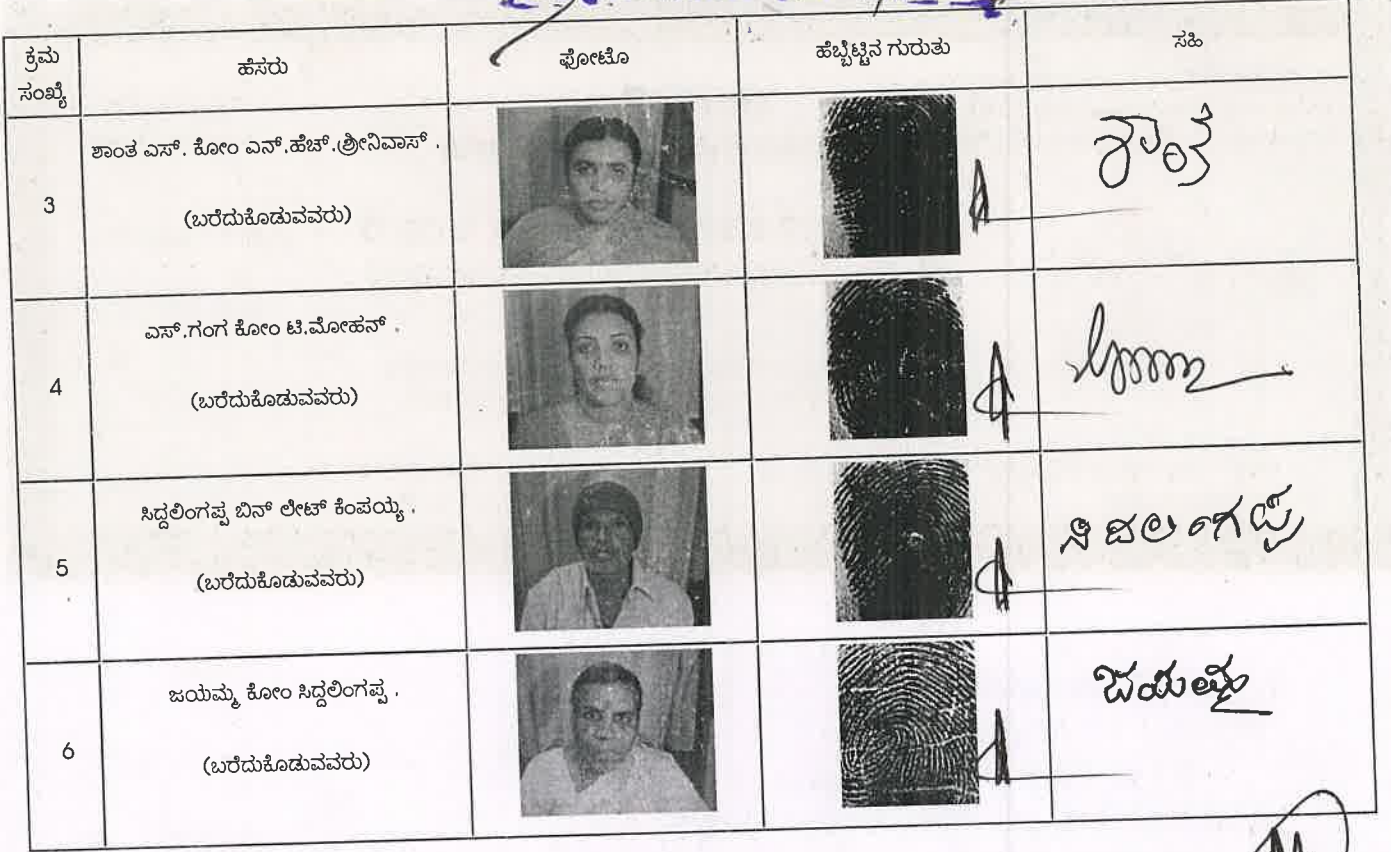 ಕ್ರಮ ಸಂಖ್ಯೆ ಹೆಸರು ಫೋಟೊ ಹೆಬ್ಬೆಟ್ಟಿನ ಗುರುತು ಸಹಿ
3 ಶಾಂತ ಎಸ್. ಕೋಂ ಎನ್.ಹೆಚ್.ಶ್ರೀನಿವಾಸ್ . ಶಾಂತ
(ಬರೆದುಕೊಡುವವರು)
4 ಎಸ್.ಗಂಗ ಕೋಂ ಟಿ.ಮೋಹನ್ .
(ಬರೆದುಕೊಡುವವರು)
5 ಸಿದ್ದಲಿಂಗಪ್ಪ ಬಿನ್ ಲೇಟ್ ಕೆಂಪಯ್ಯ . ಸಿದಲಿಂಗಪ್ಪ
(ಬರೆದುಕೊಡುವವರು)
6 ಜಯಮ್ಮ ಕೋಂ ಸಿದ್ದಲಿಂಗಪ್ಪ . ಜಯಮ್ಮ
(ಬರೆದುಕೊಡುವವರು)